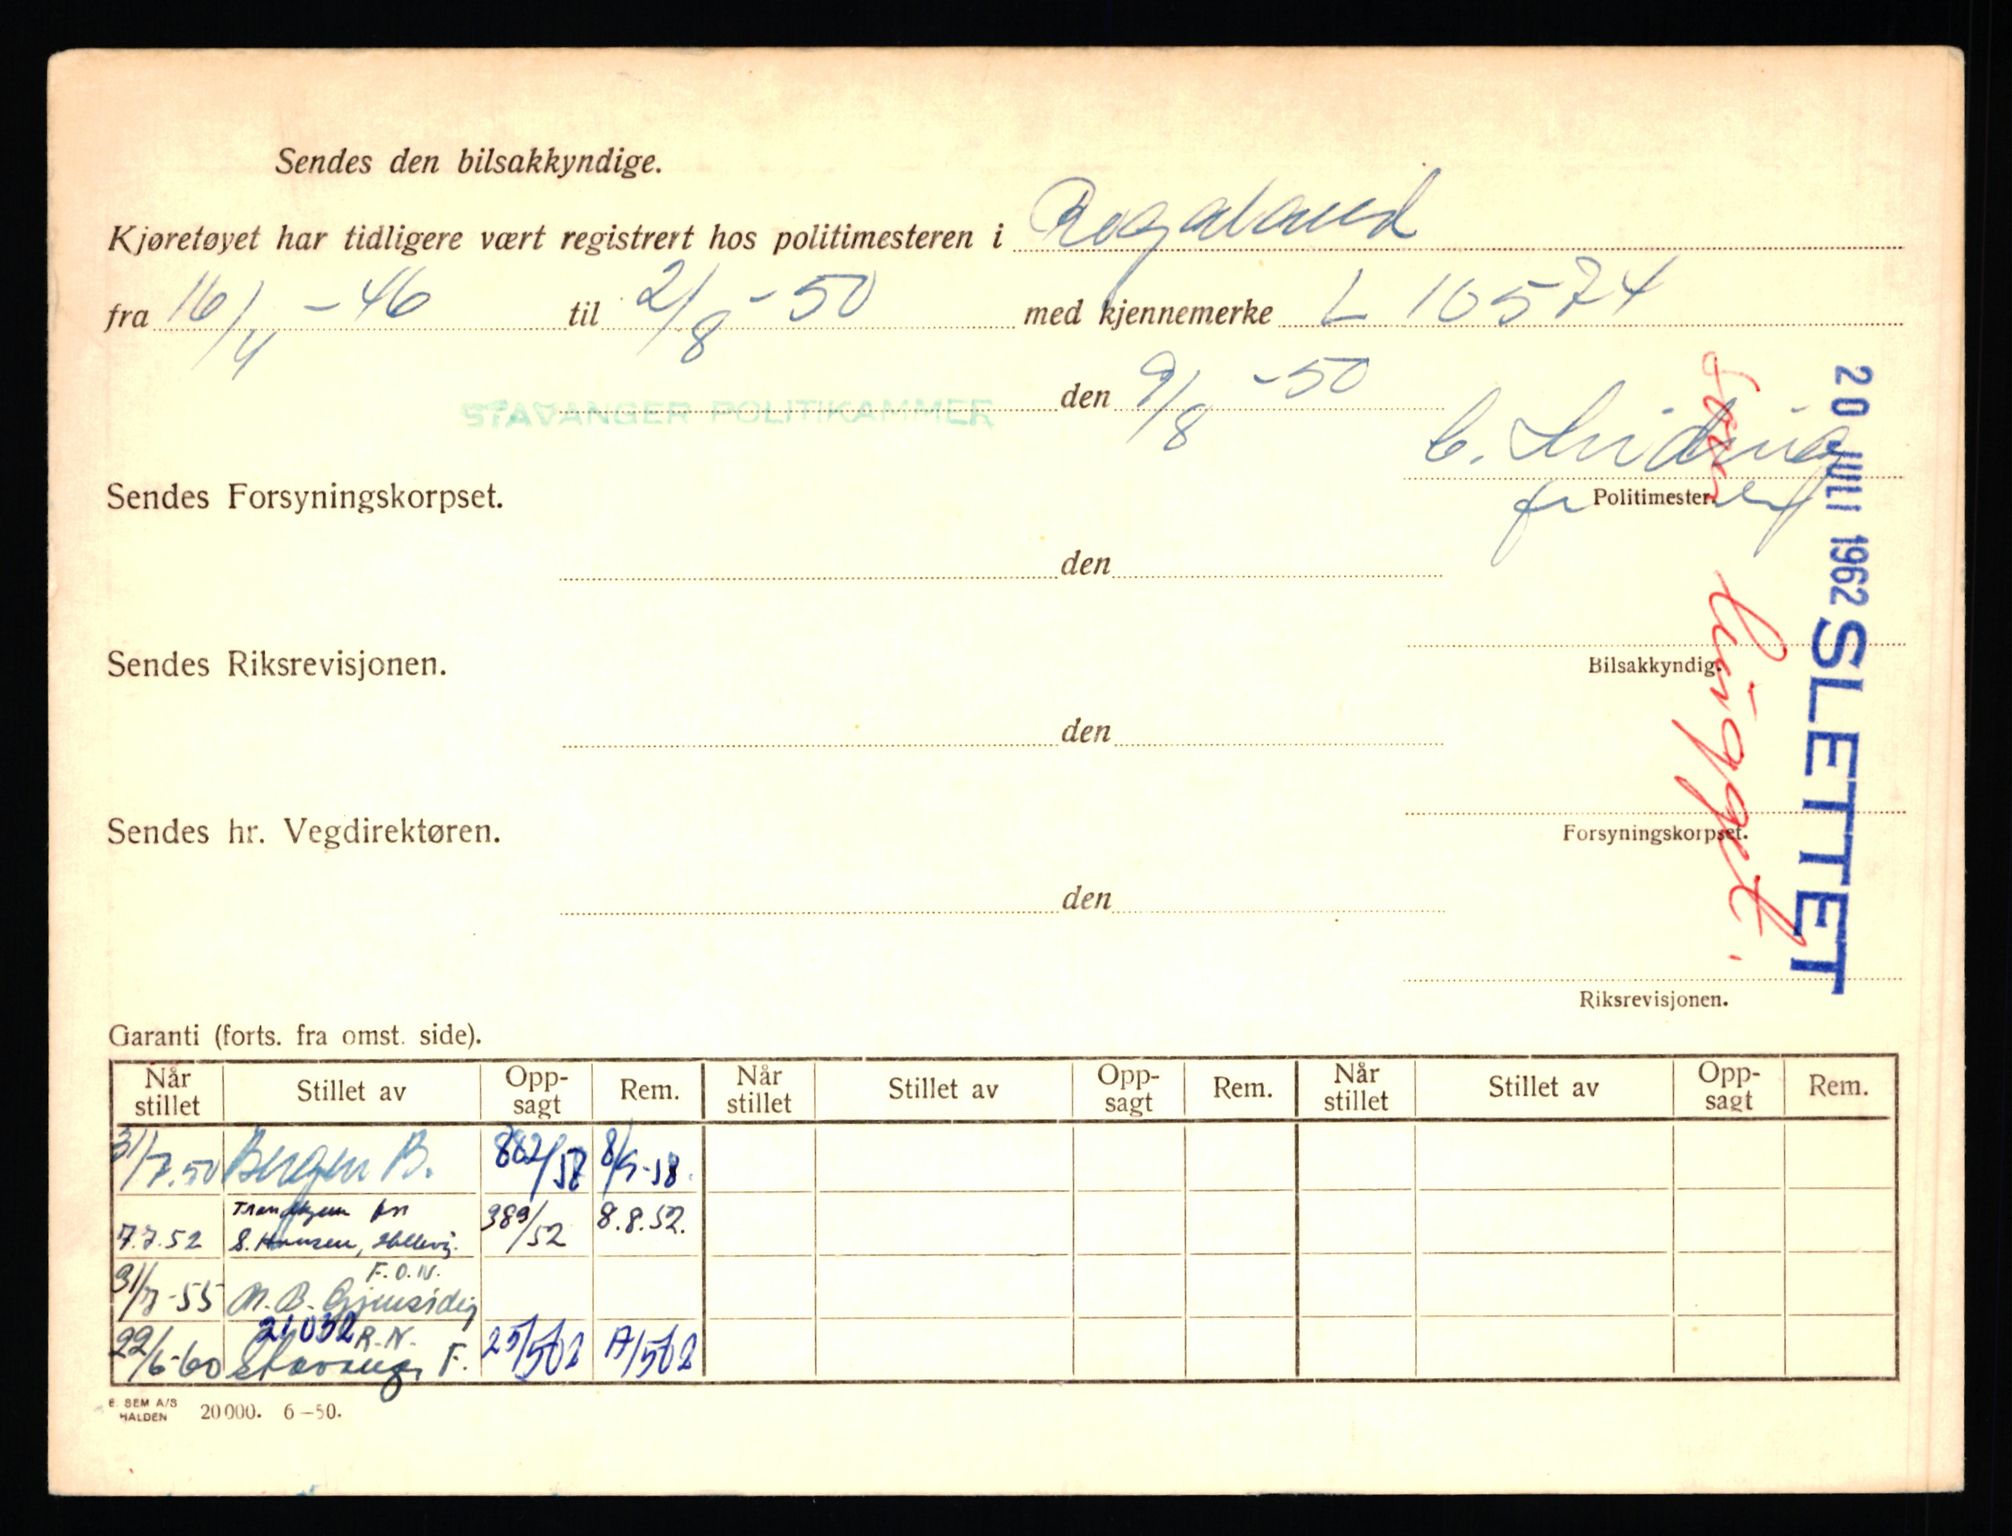 Sendes den bilsakkyndige.
Kjøretøyet har tidligere vært registrert hos politimesteren i Rogaland
fra 16/4 - 46 til 2/8 - 50 med kjennemerke L 10574
STAVANGER POLITIKAMMER den 9/8 - 50
Sendes Forsyningskorpset.
Politimester.
den
Sendes Riksrevisjonen.
Bilsakkyndig.
den
Sendes hr. Vegdirektøren.
Forsyningskorpset.
den
Riksrevisjonen.
20 JULI 1962 SLETTET
Garanti (forts. fra omst. side).
Når stillet Stillet av Opp-sagt Rem. Når stillet Stillet av Opp-sagt Rem. Når stillet Stillet av Opp-sagt Rem.
31/7.50 Bergen B. 882/58 8/9-58.
7.7.52 S. Hansen, 389/52 8.8.52.
F.O.N.
31/7-55 N.B. Gjensidig
21032 R.N.
22/6-60 Stavang. F. 25/502 A/502
E. SEM A/S
HALDEN 20000. 6-50.